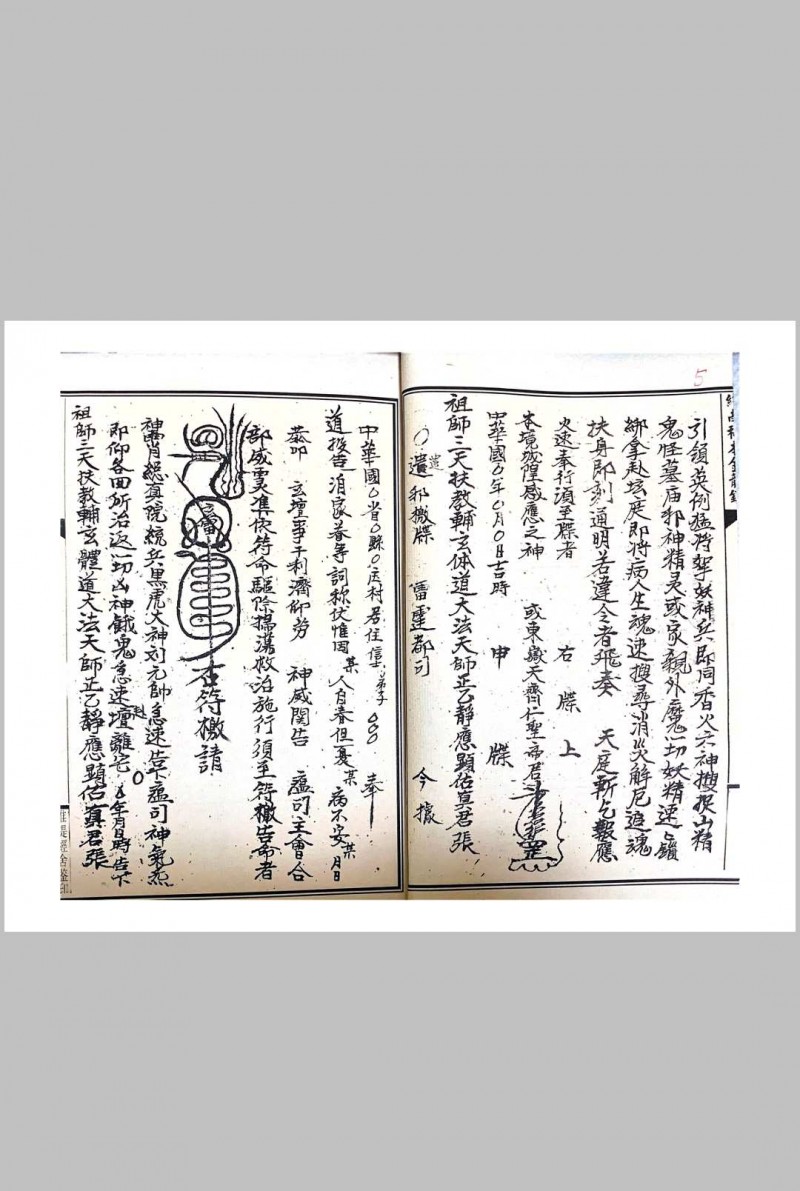 5
引領英例猛将挐妖神兵即同香火六神搜捉山精
鬼怪墓庙邪神精灵或家親外魔一切妖精速速鎖
綁拿赴坛庭即将病人生魂速搜尋消災解厄追魂
扶身即刻通明若違令者飛奏 天庭斬乞報應
火速奉行須至牒者 右牒上
本境城隍感應之神 或東嶽天齊仁聖帝君
中華國0年0月0日吉時 申 牒
祖師三天扶教輔玄体道大法天師正乙靜應顯佑真君張
〇遣邪檄牒 雷霆都司 今據
遣
中華國0省0縣0庄村居住信士弟子000 奉
道投告洎家眷等詞称伏惟因某人自春但憂某病不安某月日
恭叩 玄壇事于利濟仰勞 神威関告 瘟司主會合
部威灵準依符命驅除掃蕩救治施行須至符檄告命者
右符檄請
神霄總真院統兵黑虎大神刘元帥急速告下瘟司神氣炁
即仰各回所治返一切凶神餓鬼急速離壇宅 0年月日時告下
祖師三天扶教輔玄體道大法天師正乙靜應顯佑真君張